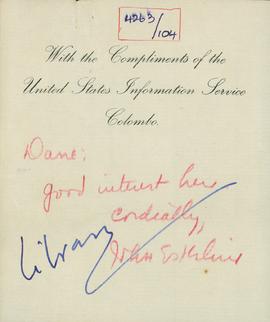 4263
/104
With the Compliments of the
United States Information Service
Colombo.
Dane:
good interest here
cordially,
Library
John Esterline